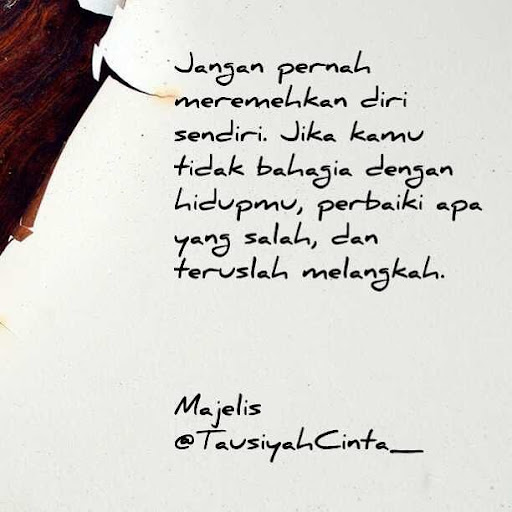 Jangan pernah
meremehkan diri
sendiri. Jika kamu
tidak bahagia dengan
hidupmu, perbaiki apa
yang salah, dan
teruslah melangkah.
Majelis
@TausiyahCinta_